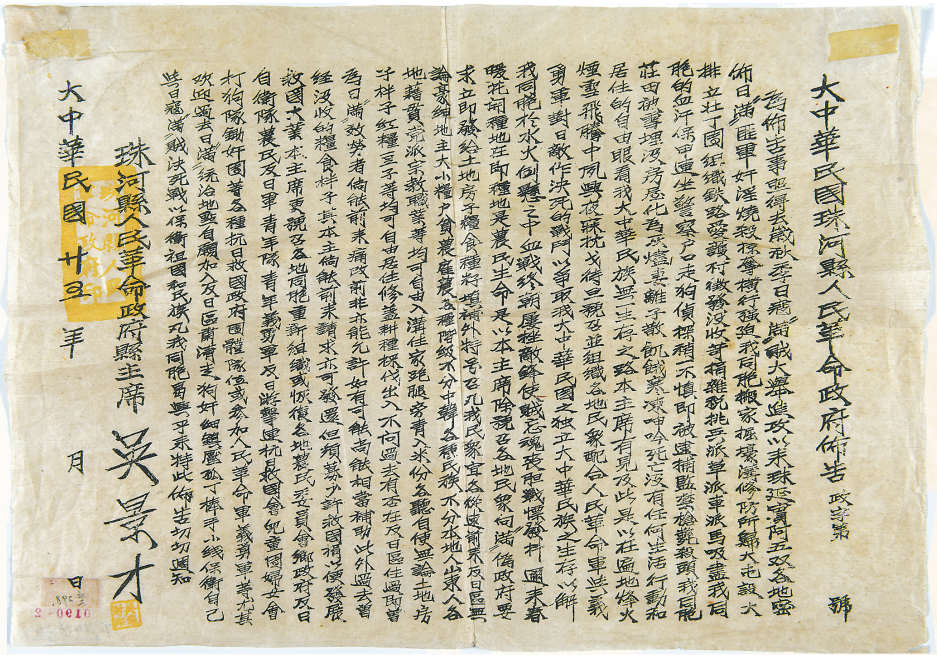 大中華民國珠河縣人民革命政府佈告 政字第 號
為佈告事照得去歲秋季日寇滿賊大舉進攻以來珠延賓阿五双各地
佈日滿匪軍奸淫燒殺掠奪橫行強迫我同胞搬家掘壕溝修防所歸大屯設火
排立壯丁團組織鉄路愛護村徵發沒收苛捐雜稅挑兵派草派車派馬吸盡我同
胞的血汗保甲連坐警察戶口走狗偵探稍不慎即被逮捕監禁槍斃殺頭我同胞
莊田被霸埋沒房屋化為灰燼妻離子散飢餓寒凍呻吟死亡沒有任何生活行動和
居住的自由眼看我大中華民族無生存之路本主席有見及此是以在區地烽火
煙雲飛騰中夙興夜寐枕戈待旦親及並組織各地民眾配合人民革命軍與義
勇軍對日敵作決死的戰鬥以爭取我大中華民國之獨立大中華民族之生存以解
我同胞於水火倒懸之中血戰終朝屢挫敵鋒使賊忘魂喪胆戰慄發抖 週來春
暖花開種地在即種地是農民生命是以本主席除號召各地民眾向滿偽政府要
求立即發給土地房子糧食種籽塡補外特 凡我民眾宜各從速前來及日區無
論豪紳地主大小糧戶貧農雇農各種階級不分中韓各種民族不分本地人山東人各
地籍貫 派宗教職業等均可自由入溝住家跑腿 青入 份各聽自便無論土地房
子 子紅糧豆子等均可自由居住修蓋耕種採伐出入不问過去有否在及日區住過即曾
為日滿效勞者倘能前來痛改前非亦能允許如有可能尚能相當補助此外過去曾
經沒收的糧食 子其本主倘能前來請求亦可發還但須募少許救國捐以便發展
救國大業本主席更號召各地同胞重新組織或恢復各地農民委員會鄉政府及日
自衛隊農民及日軍青年隊青年義勇軍及日 擊連抗日救國會兒童團婦女會
打狗隊鋤奸團等各種抗日救國政府團體隊伍或參加人民革命軍義勇軍等尤其
欢迎過去日滿統治地點自願加入及日區肅清走狗奸細鎮壓孤丁棒手小綫保衛自己
與日寇滿賊決死戰以保衛祖國和民族凡我同胞曷興乎來特此佈告切切週知
珠河縣人民革命政府縣主席 吳景才
大中華民國廿五年 月 日
珠河縣人民革命政府印
2-0610